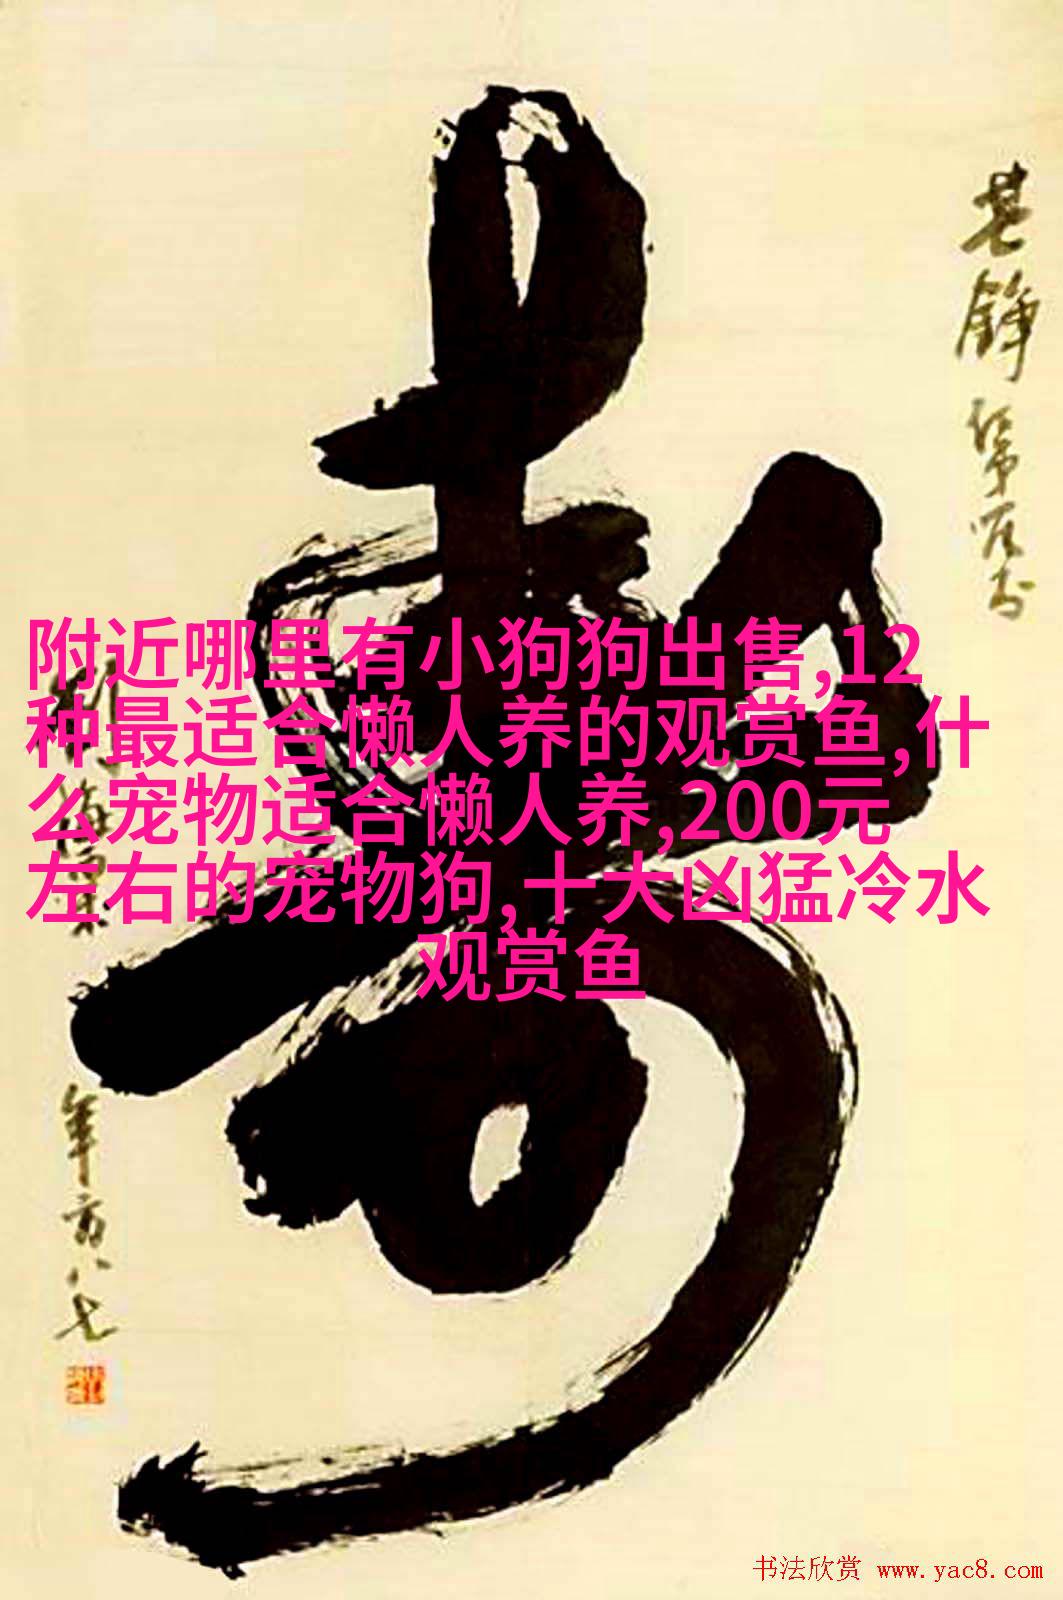 寿
其铮
年方八七
附近哪里有小狗狗出售,12
种最适合懒人养的观赏鱼,什
么宠物适合懒人养,200元
左右的宠物狗,十大凶猛冷水
观赏鱼
书法欣赏 www.yac8.com